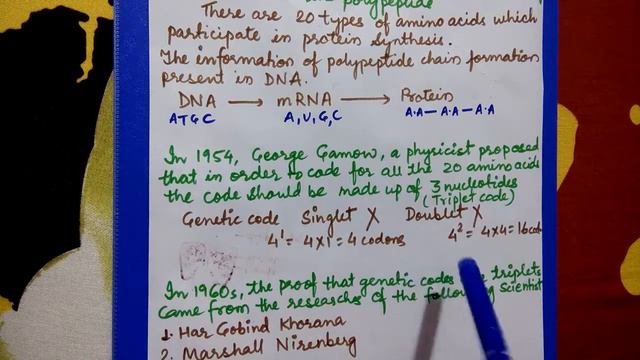 polypeptide
There are 20 types of amino acids which
participate in protein synthesis.
The information of polypeptide chain formation
present in DNA.
DNA → mRNA → Protein
ATGC A,U,G,C A.A—A.A—A.A
In 1954, George Gamow, a physicist proposed
that in order to code for all the 20 amino acids
the code should be made up of 3 nucleotides
(Triplet code)
Genetic code Singlet X Doublet X
4¹ = 4×1 = 4 codons 4² = 4×4 = 16 cod
In 1960s, the proof that genetic codes triplets
came from the researchs of the following scientist
1. Har Gobind Khorana
2. Marshall Nirenberg